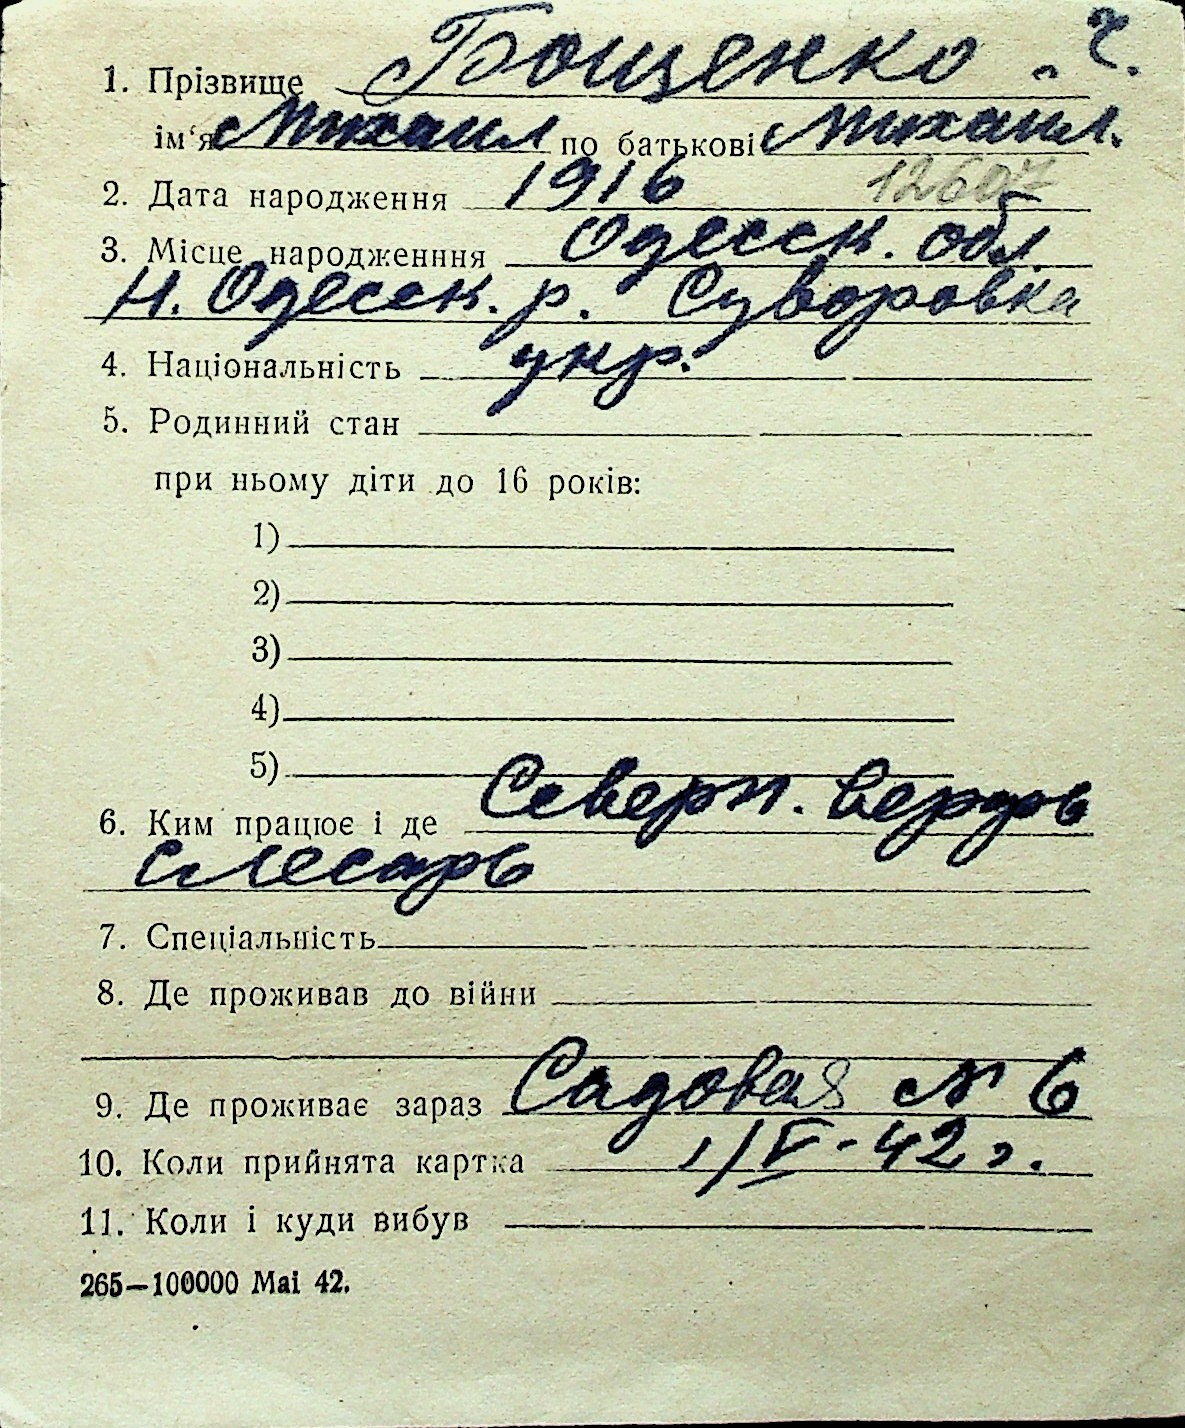 1. Прізвище Бощенко . ч.
ім'я Михаил по батькові Михаил.
2. Дата народження 1916 12607
3. Місце народженння Одесск. обл.
Н. Одесск. р. Суворовка
4. Національність укр.
5. Родинний стан
при ньому діти до 16 років:
1)
2)
3)
4)
5)
6. Ким працює і де Северн. верфь
слесарь
7. Спеціальність
8. Де проживав до війни
9. Де проживає зараз Садовая № 6
10. Коли прийнята картка 1/V-42 г.
11. Коли і куди вибув
265—100000 Mai 42.